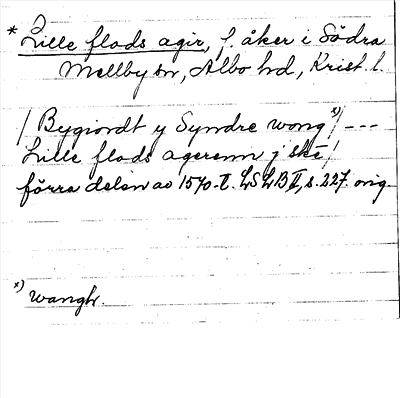 * Lille flads agir, f. åker i Södra
Mellby sn, Albo hd, Krist. l.
/ Bygiordt y Syndre wong x) / ---
Lille flads agerenn j skē /
förra delen av 1570-t. LSLB II, s. 227. orig.
x) wangh.